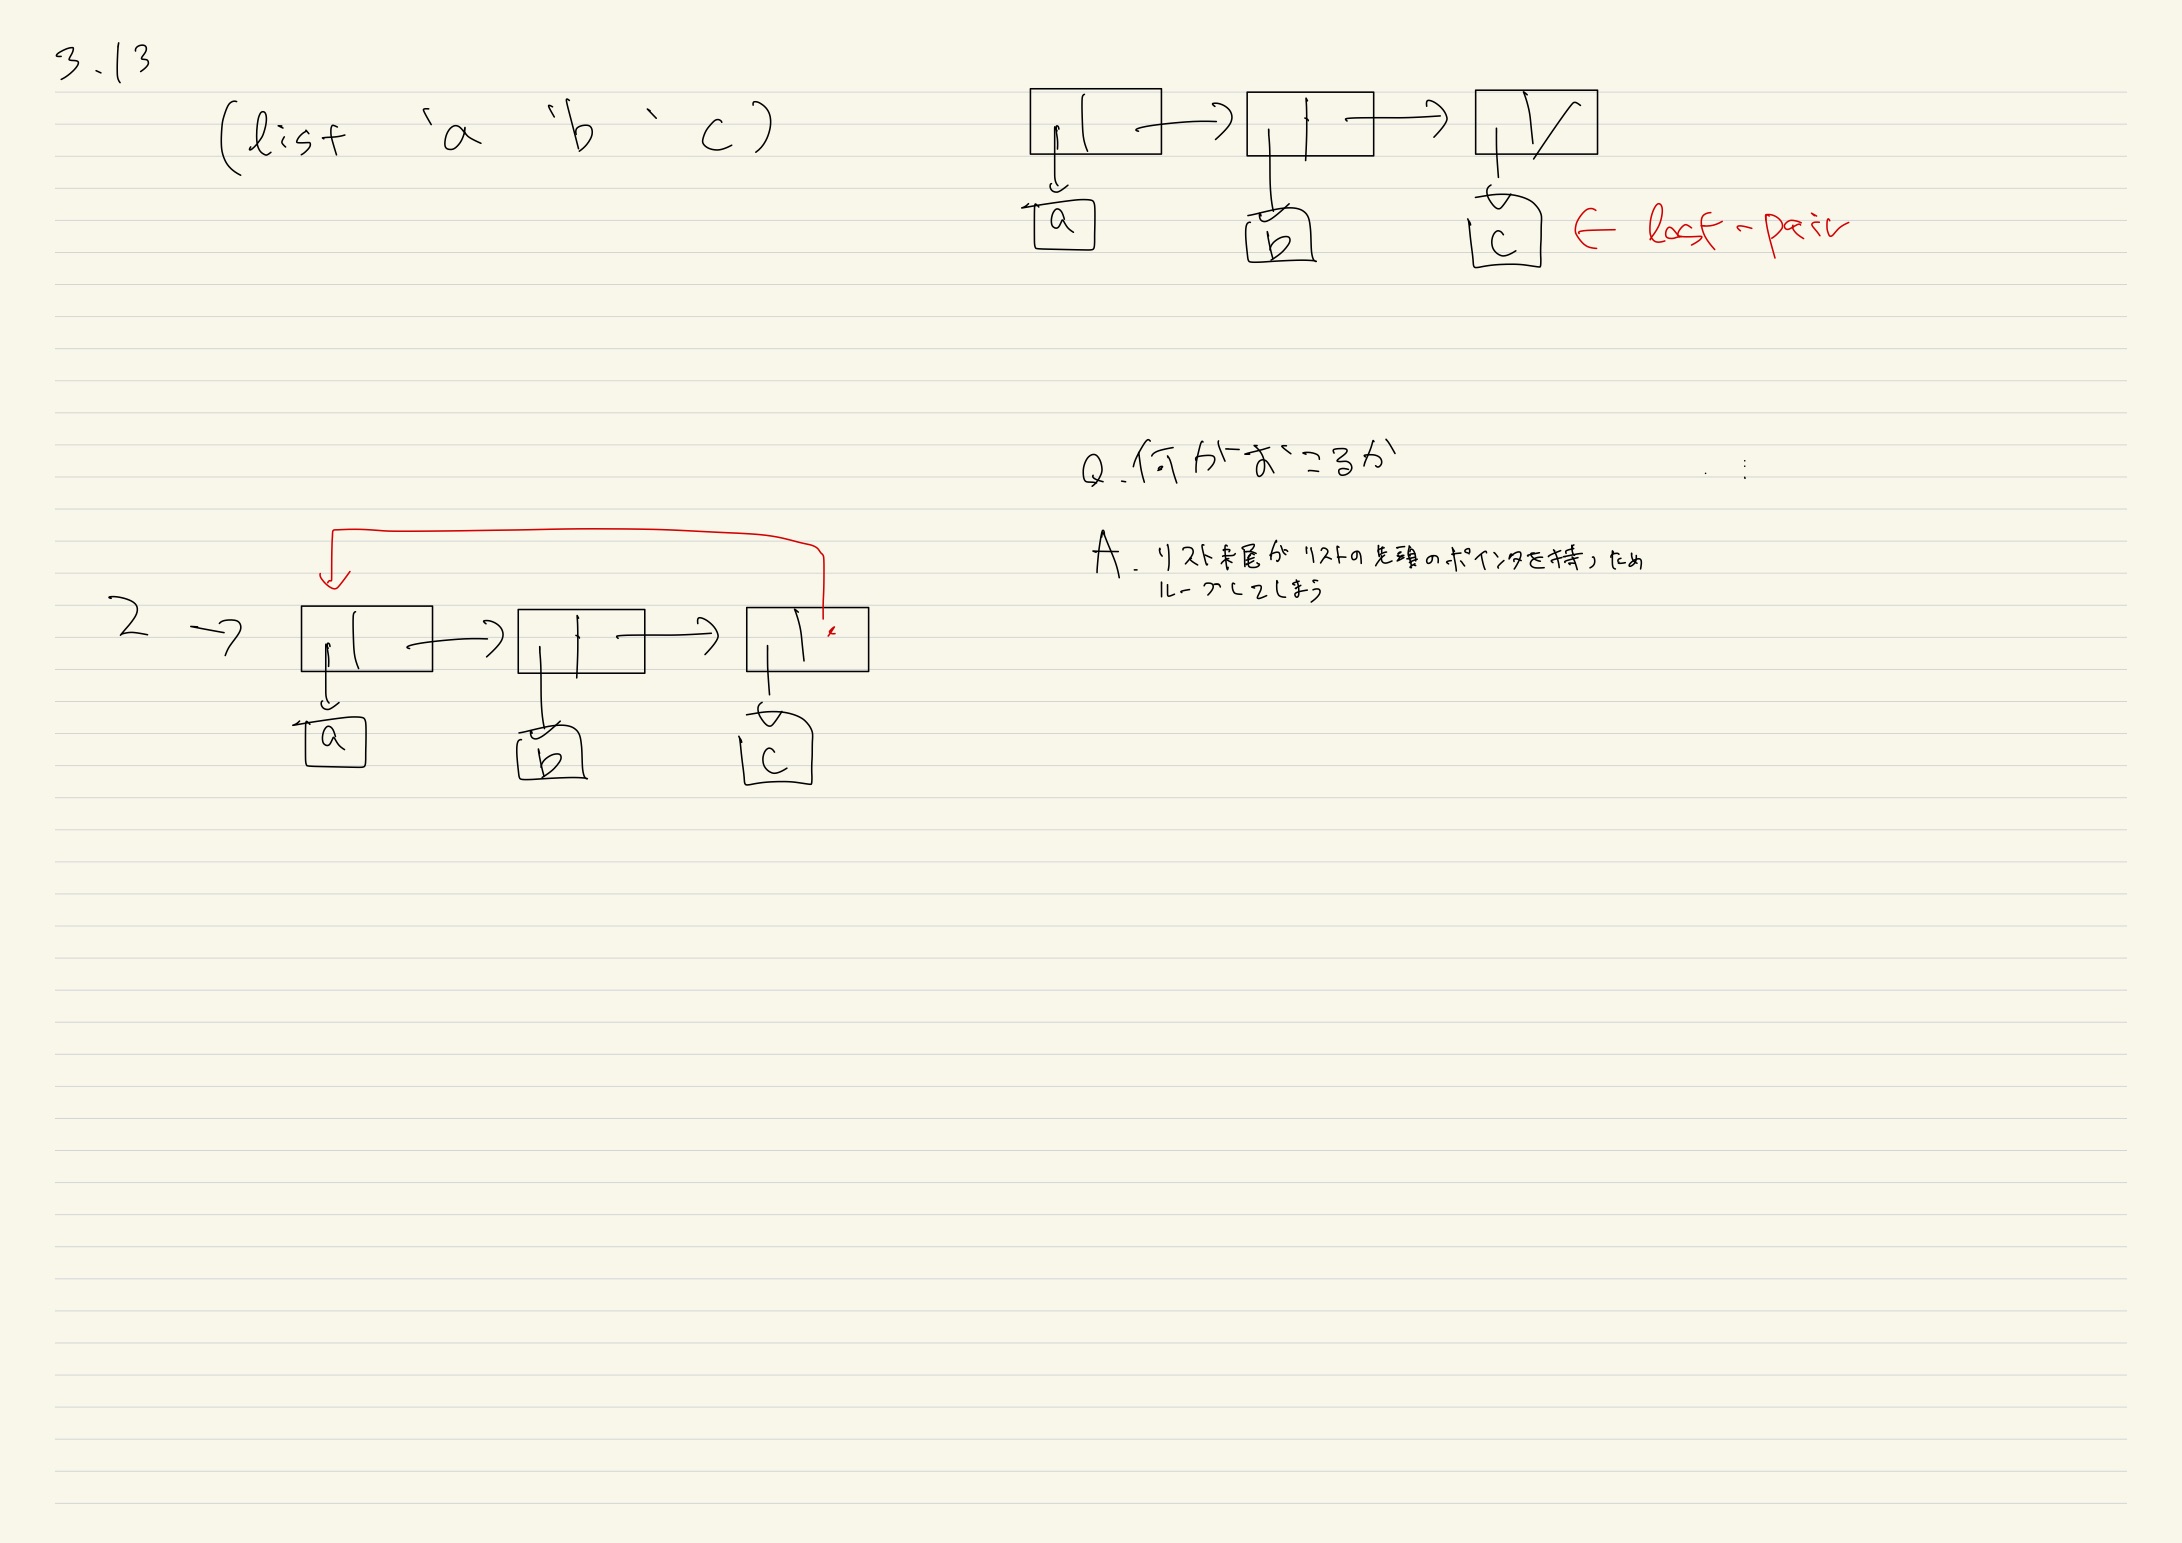 3.13
(list 'a 'b 'c)
a
b
c
← last-pair
Q.何がおこるか
A. リスト末尾がリストの先頭のポインタを持つため
ループしてしまう
Z →
a
b
c